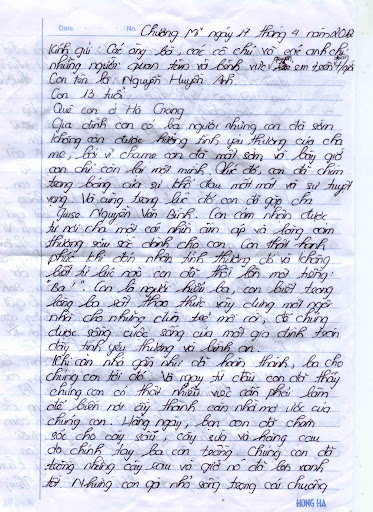 Date No.
Chương Mĩ ngày 17 tháng 4 năm 2012
Kính gửi: Các ông bà, các cô chú và các anh chị
những người quan tâm và bênh vực trẻ em trên t/giới
Con tên là: Nguyễn Huyền Anh.
Con 13 tuổi.
Quê con ở Hà Giang
Gia đình con có ba người nhưng con đã sớm
không còn được hưởng tình yêu thương của cha
mẹ, bởi vì cha mẹ con đã mất sớm và bây giờ
con chỉ còn lại một mình. Lúc đó, con đã chìm
trong bóng của sự khổ đau mất mát và sự tuyệt
vọng. Và cũng trong lúc đó con đã gặp cha
Giuse Nguyễn Văn Bình. Con cảm nhận được
từ nơi cha một cái nhìn ấm áp và lòng cảm
thương sâu sắc dành cho con. Con thật hạnh
phúc khi đón nhận tình thương đó và không
biết từ lúc nào con đã thốt lên một tiếng:
"Ba!". Con là người hiểu ba, con biết trong
lòng ba rất thao thức xây dựng một ngôi
nhà cho những đứa trẻ mồ côi, để chúng
được sống cuộc sống của một gia đình tràn
đầy tình yêu thương và bình an.
Khi căn nhà gần như đã hoàn thành, ba cho
chúng con tới đó. Và ngay từ đầu con đã thấy
chúng con có thật nhiều việc cần phải làm
để biến nơi ấy thành căn nhà mơ ước của
chúng con. Hàng ngày, bọn con đã chăm
sóc cho cây sấu, cây dừa và hàng cau
do chính tay ba con trồng, chúng con đã
trồng những cây rau và giờ nó đã lên xanh
tốt. Nhưng con gà nhỏ sống trong cái chuồng
HONG HA